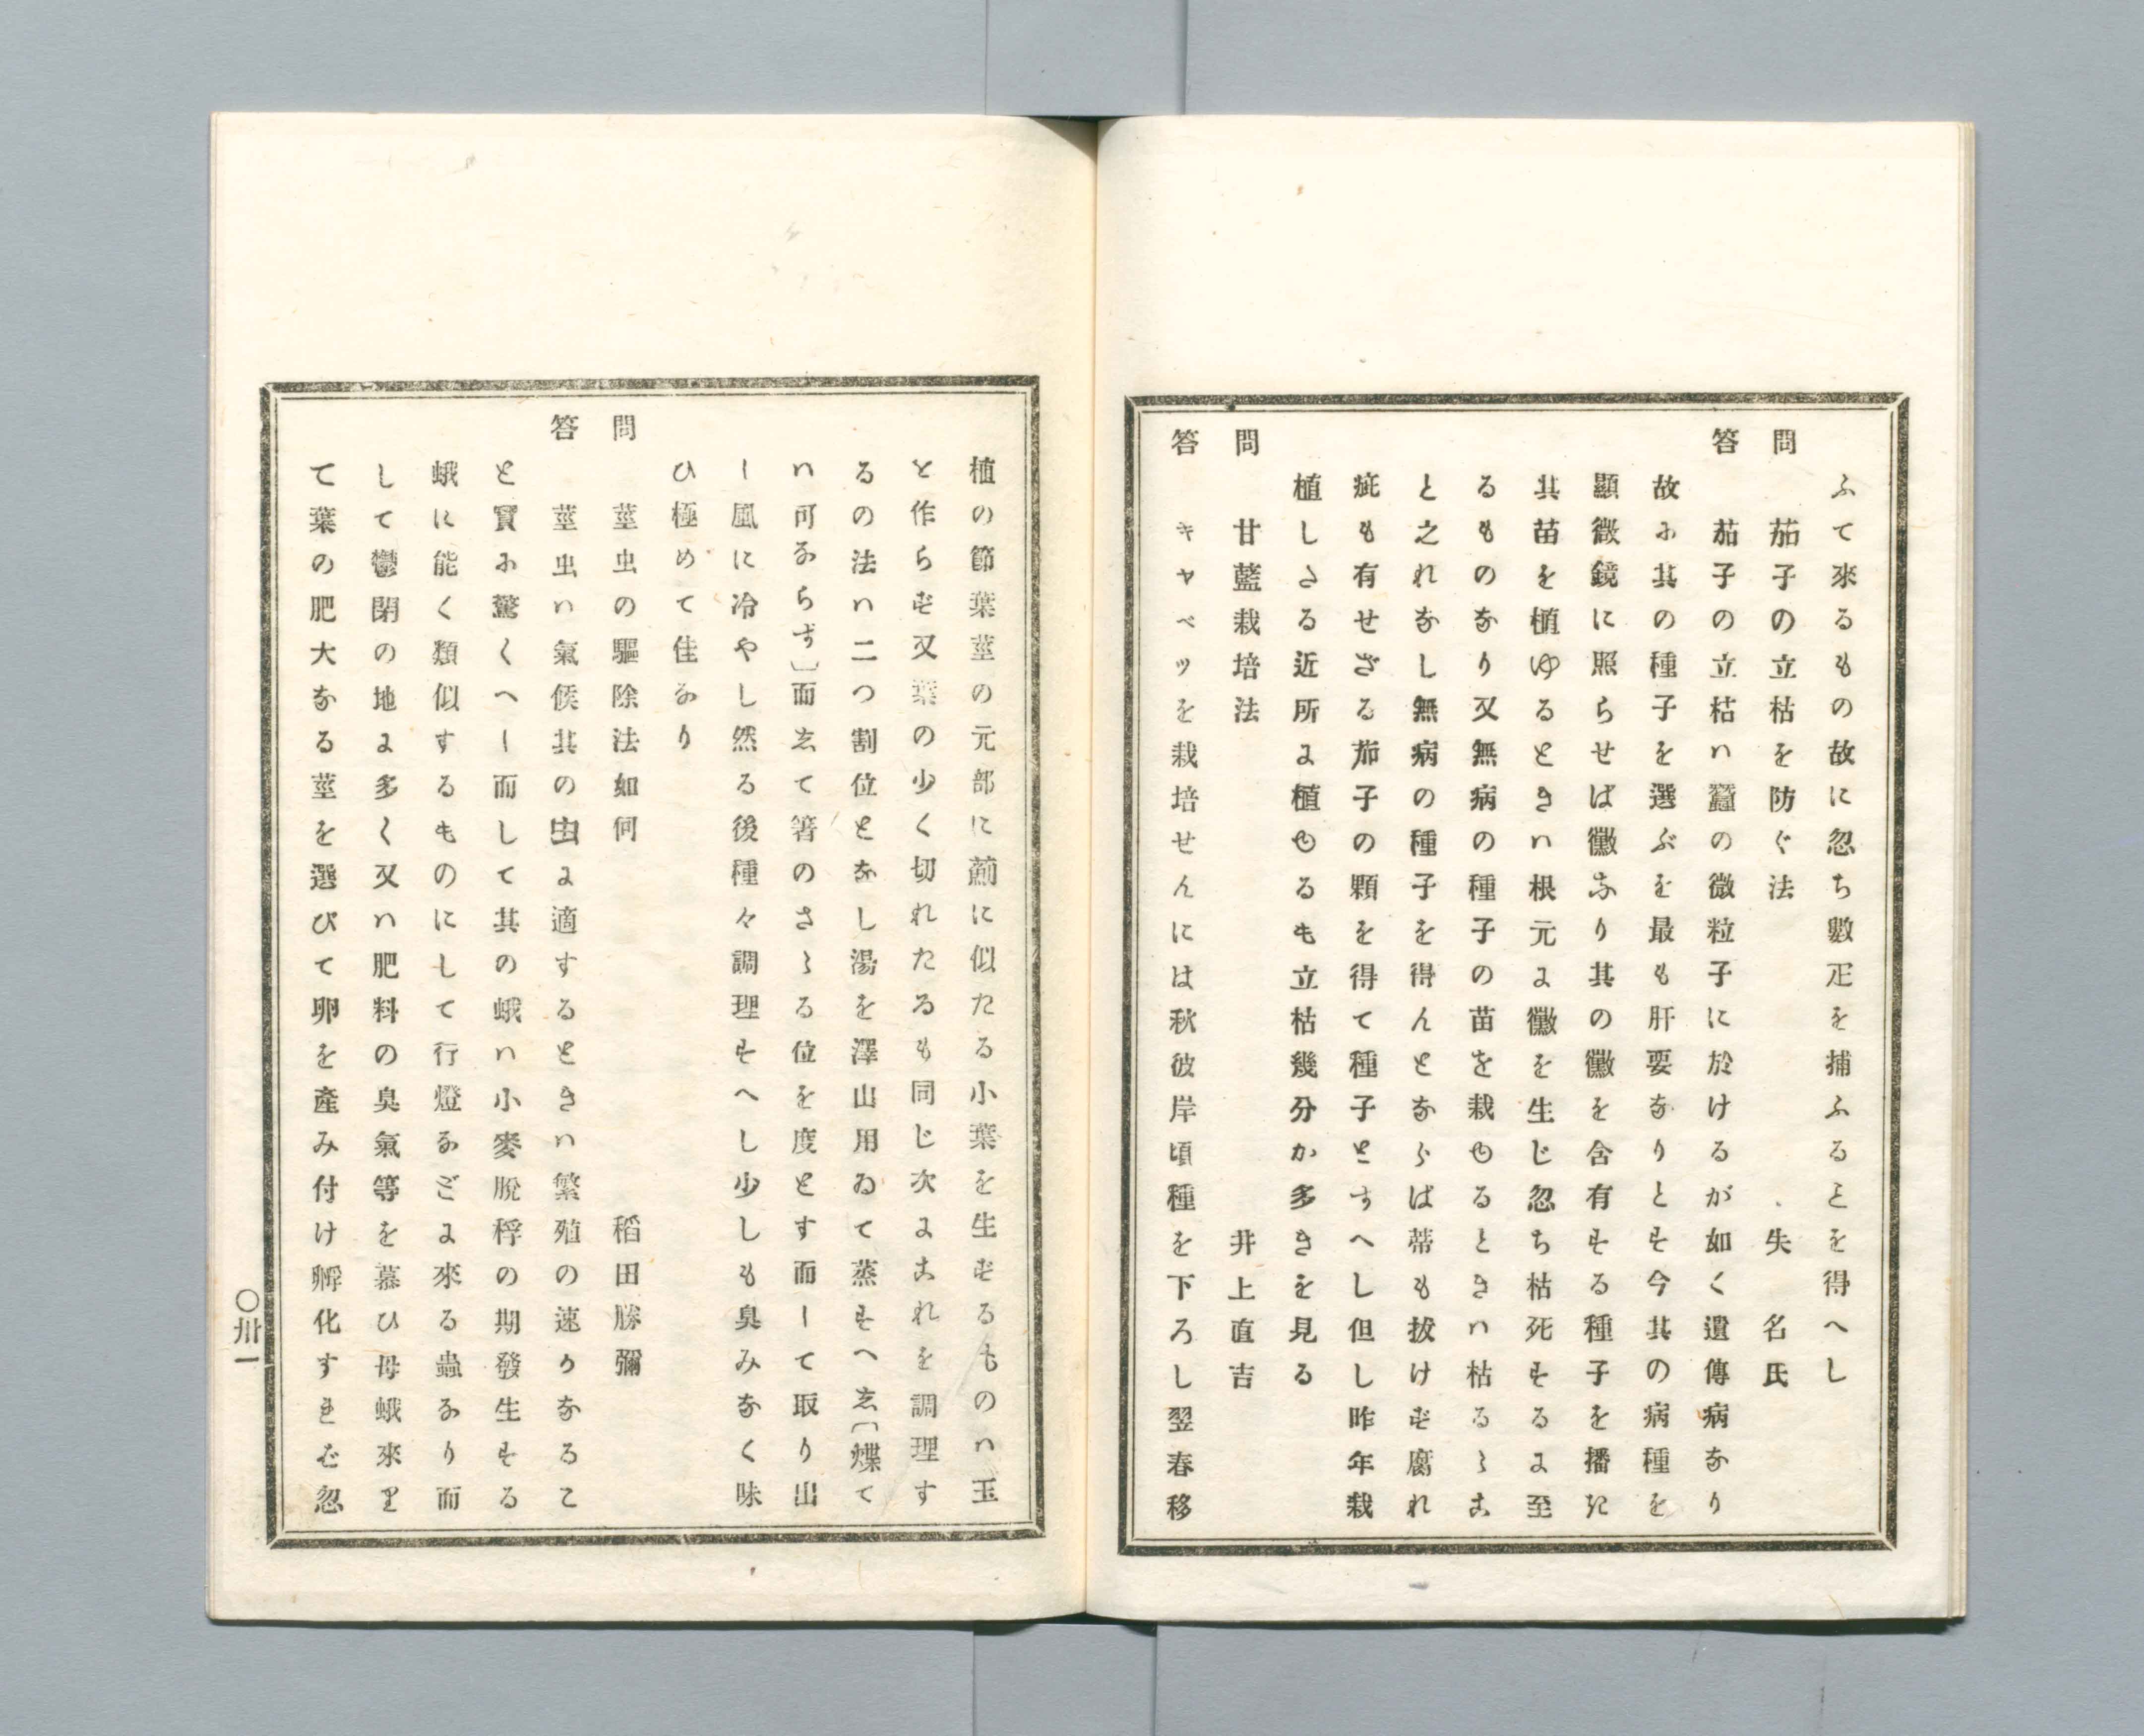 ふて來るもの故に忽ち數疋を捕ふるとを得へし
問　茄子の立枯を防ぐ法　失名氏
答　茄子の立枯ハ蠶の微粒子に於けるが如く遺傳病なり
故に其の種子を選ぶを最も肝要なりとす今其の病種を
顯微鏡に照らせば黴あり其の黴を含有する種子を播た
其苗を植ゆるときハ根元に黴を生じ忽ち枯死するに至
るものなり又無病の種子の苗を栽ゆるときハ枯るゝこ
と之れなし無病の種子を得んとならば蒂も拔けず腐れ
疵も有せざる茄子の顆を得て種子とすへし但し昨年栽
植しさる近所に植ゆるも立枯幾分か多きを見る
問　甘藍栽培法　井上直吉
答　キャベツを栽培せんには秋彼岸頃種を下ろし翌春移
植の節葉莖の元部に薊に似たる小葉を生ずるものハ玉
と作らず又葉の少く切れたるも同じ次にこれを調理す
るの法ハ二つ割位となし湯を澤山用ゐて蒸すへし〔煠て
ハ可ならず〕而して箸のさゝる位を度とす而して取り出
し風に冷やし然る後種々調理すへし少しも臭みなく味
ひ極めて佳なり
問　莖虫の驅除法如何　稻田勝彌
答　莖虫ハ氣候其の虫に適するときハ繁殖の速かなるこ
と實に驚くへし而して其の蛾ハ小麥脫稃の期發生する
蛾に能く類似するものにして行燈などに來る蟲なり而
して鬱閉の地に多く又ハ肥料の臭氣等を慕ひ母蛾來り
て葉の肥大なる莖を選びて卵を產み付け孵化すれば忽
〇卅一